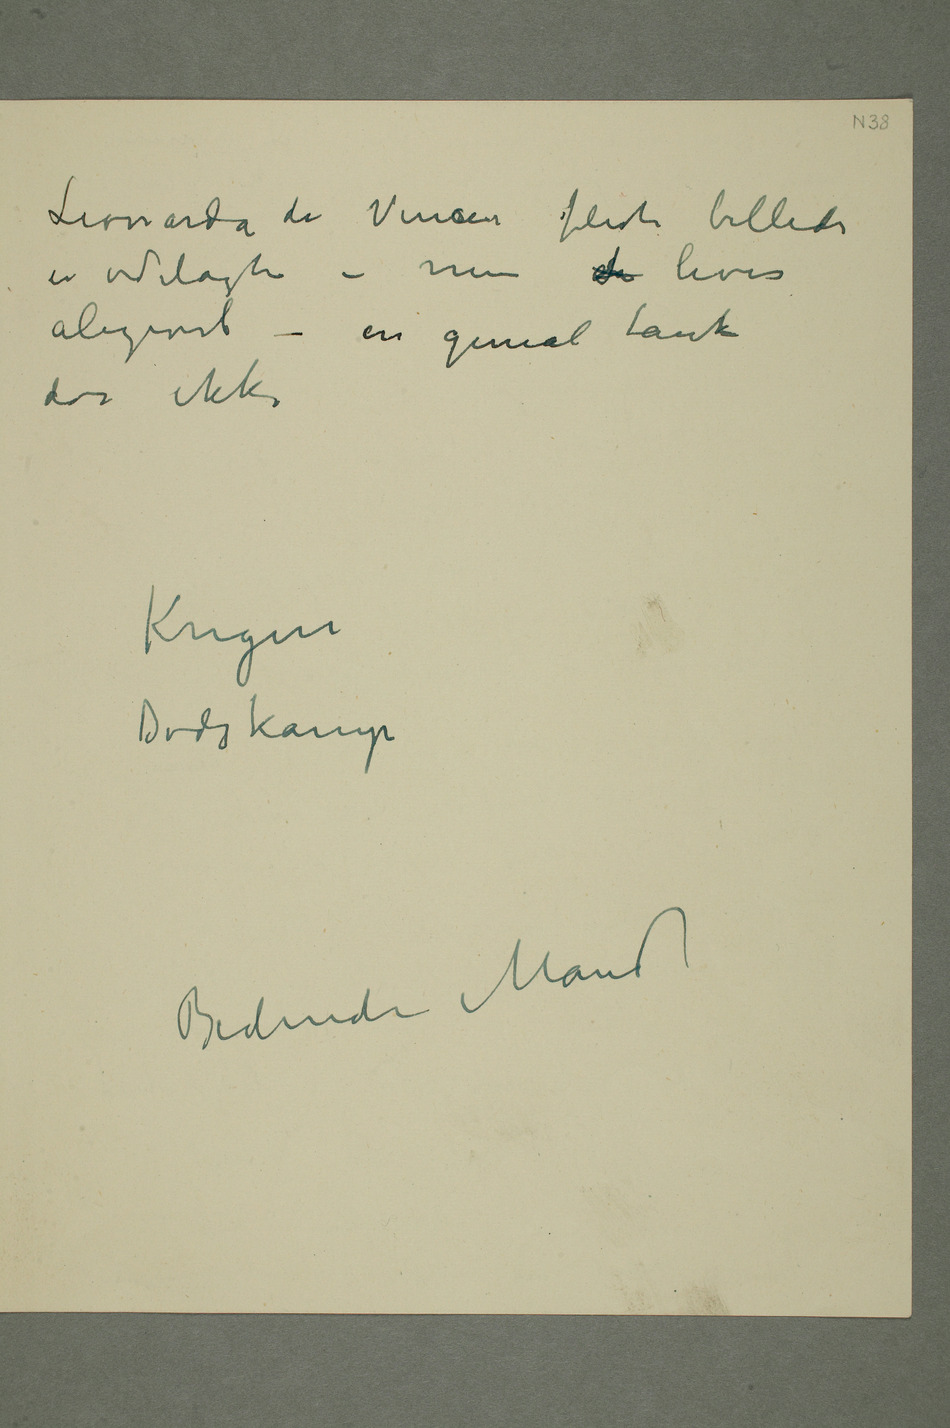 N38
Leonarda da Vincis fleste billeder
er ødelagte – men de leves
aligevel – en genial tanke
dør ikke
Krigen
Dødskamp
Bedende Mand